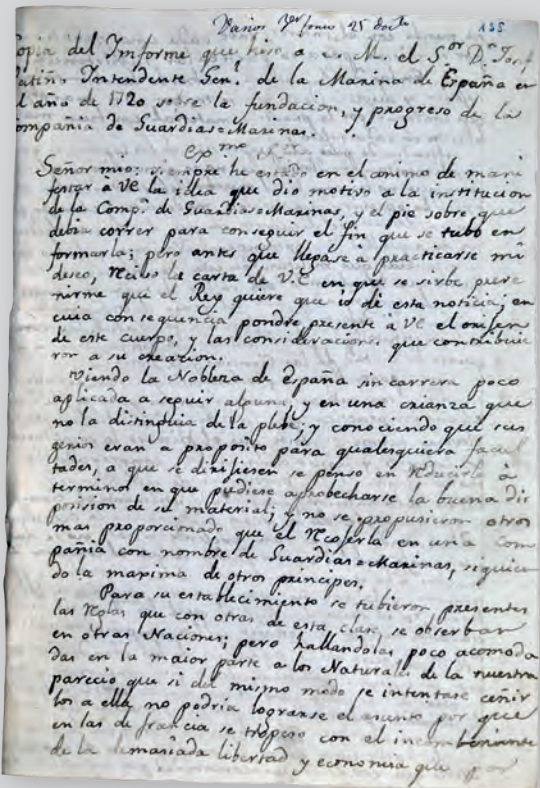 Varios Ynfomes 25 Docto
135
Copia del Imforme que hiso a S. M. el S.or D.n Josef
Patiño Intendente Gen.l de la Marina de España en
el año de 1720 sobre la fundacion, y progreso de la
Compañia de Guardias=Marinas.
Exmo S.or
Señor mio: siempre he estado en el animo de mani
festar a VE la idea que dio motivo a la institucion
de la Comp.a de Guardias=Marinas, y el pie sobre que
debia correr para conseguir el fin que se tubo en
formarla; pero antes que llegase a practicarse mi
deseo, recivo la carta de V.E en que se sirbe preve
nirme que el Rey quiere que io dé esta noticia; en
cuia consequencia pondre presente a VE el orijen
de este cuerpo, y las consideraciones que contribuie
ron a su creazion.
Viendo la Nobleza de España sin carrera poco
aplicada a seguir alguna, y en una crianza que
no la distinguia de la plebe; y conociendo que sus
genios eran a proposito para qualesquiera facul
tades, a que se dirijiesen se penso en reducirla à
terminos en que pudiese aprobecharse la buena dis
posision de su material; y no se propusieron otros
mas proporcionado que el recojerla en una Com
pañia con nombre de Guardias=Marinas, siguien
do la maxima de otros principes.
Para su establecimiento se tubieron presentes
las reglas que con otras de esta clase, se observan
en otras Naciones; pero hallandolas poco acomoda
das en la maior parte a los Naturales de la nuestra
parecio que si del mismo modo se intentase ceñir
los a ella no podria lograrse el asunto por que
en las de francia se tropeso con el incombeniente
de la demasiada libertad y economia que por